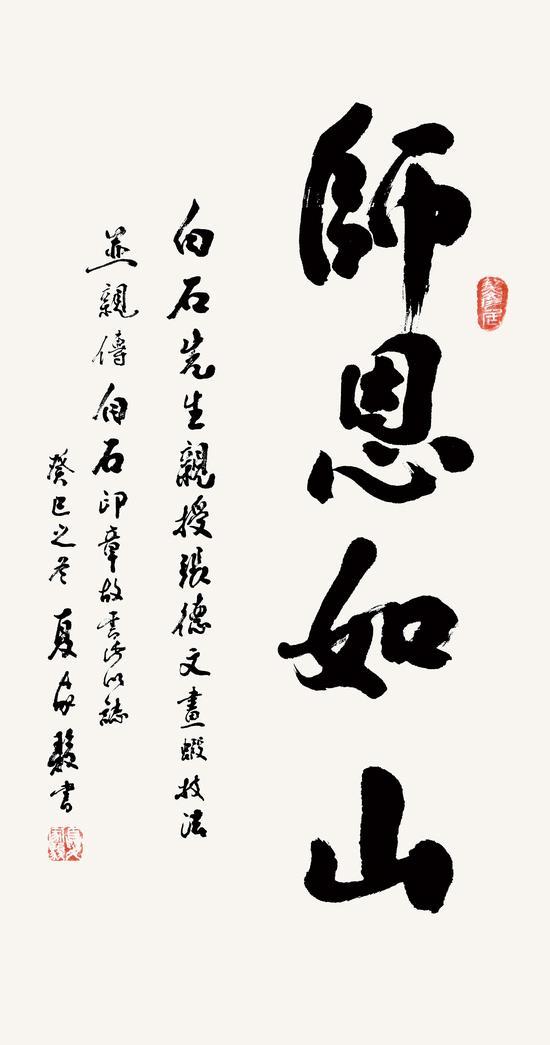 師恩如山
白石先生親授張德文畫蝦技法
並親傳白石印章故書此以誌
癸巳之冬 夏家駿書